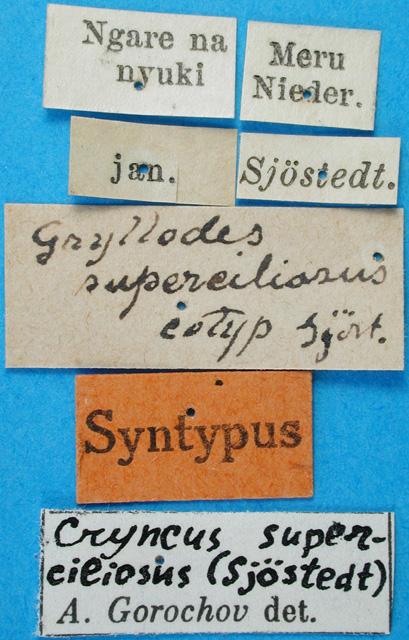 Ngare na
nyuki
Meru
Nieder.
jan.
Sjöstedt.
Gryllodes
superciliosus
cotyp Sjöst.
Syntypus
Cryncus super-
ciliosus (Sjöstedt)
A. Gorochov det.